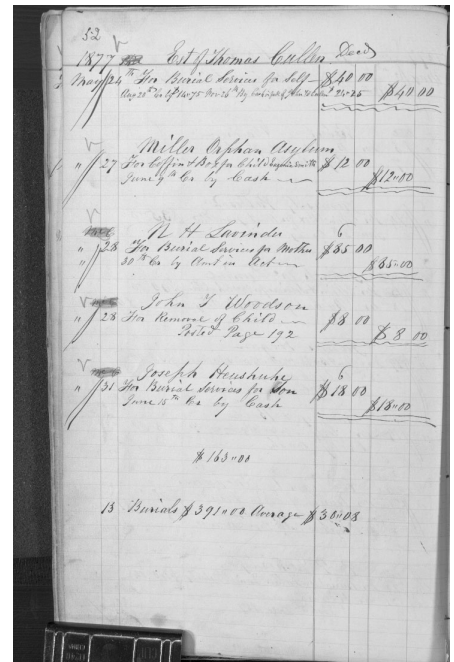 52
1877 Est of Thomas Cullen Decd
May 24th For Burial Services for Self $40 00
Aug 20th Cr 14.75 Nov 26th By 25.25 $40 00
Miller Orphan Asylum
" 27 For Coffin & Box for Child Smith $12 00
June 9th Cr by Cash $12.00
N H Lavinder
" 28 For Burial Services for Mother $85 00
" 30th Cr by Amt in Act $85.00
John T Woodson
" 28 For Removal of Child $8 00
Posted Page 192 $8 00
Joseph
" 31 For Burial Services for Son $18 00
June 15th Cr by Cash $18.00
$163.00
13 Burials $391.00 Average $30.08